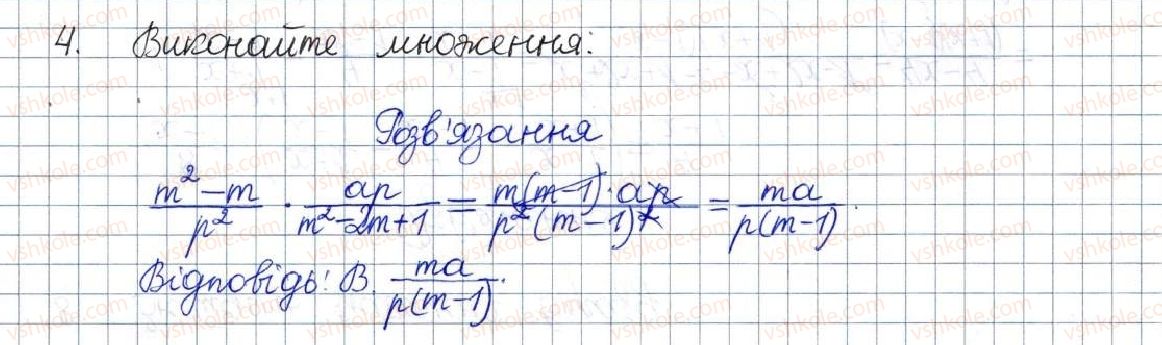 4. Виконайте множення:
Розв'язання
\frac{m^2-m}{p^2} \cdot \frac{ap}{m^2-2m+1} = \frac{m(m-1) \cdot ap}{p^2(m-1)^2} = \frac{ma}{p(m-1)}.
Відповідь: В. \frac{ma}{p(m-1)}.